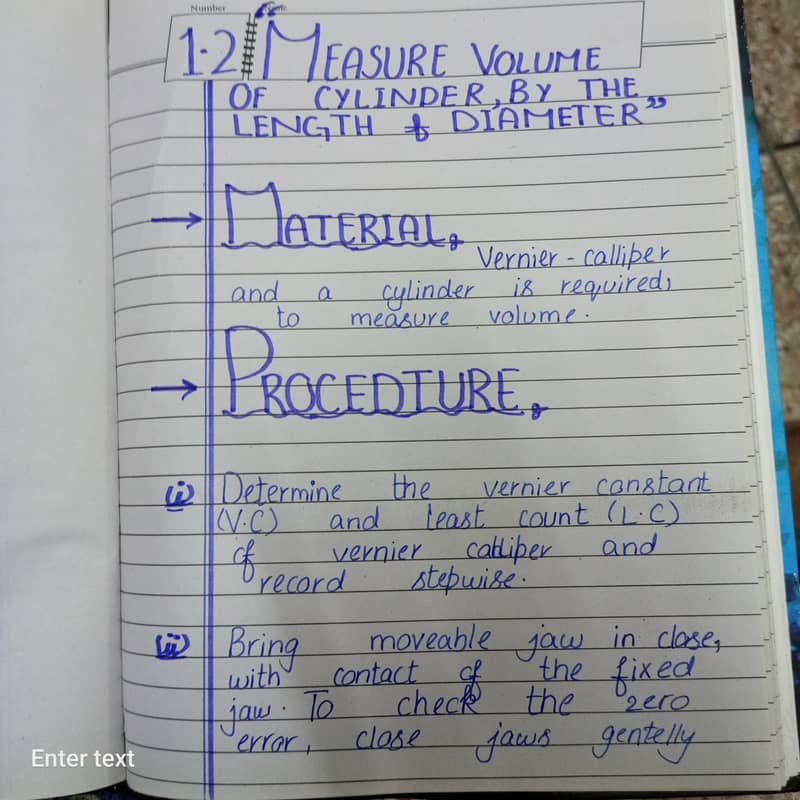 Number
1.2 MEASURE VOLUME
OF CYLINDER, BY THE
LENGTH & DIAMETER"
→ MATERIAL,
Vernier - calliper
and a cylinder is required,
to measure volume.
→ PROCEDTURE,
(i) Determine the vernier constant
(V.C) and least count (L.C)
of vernier calliper and
record stepwise.
(ii) Bring moveable jaw in close,
with contact of the fixed
jaw. To check the zero
error, close jaws gentelly
Enter text